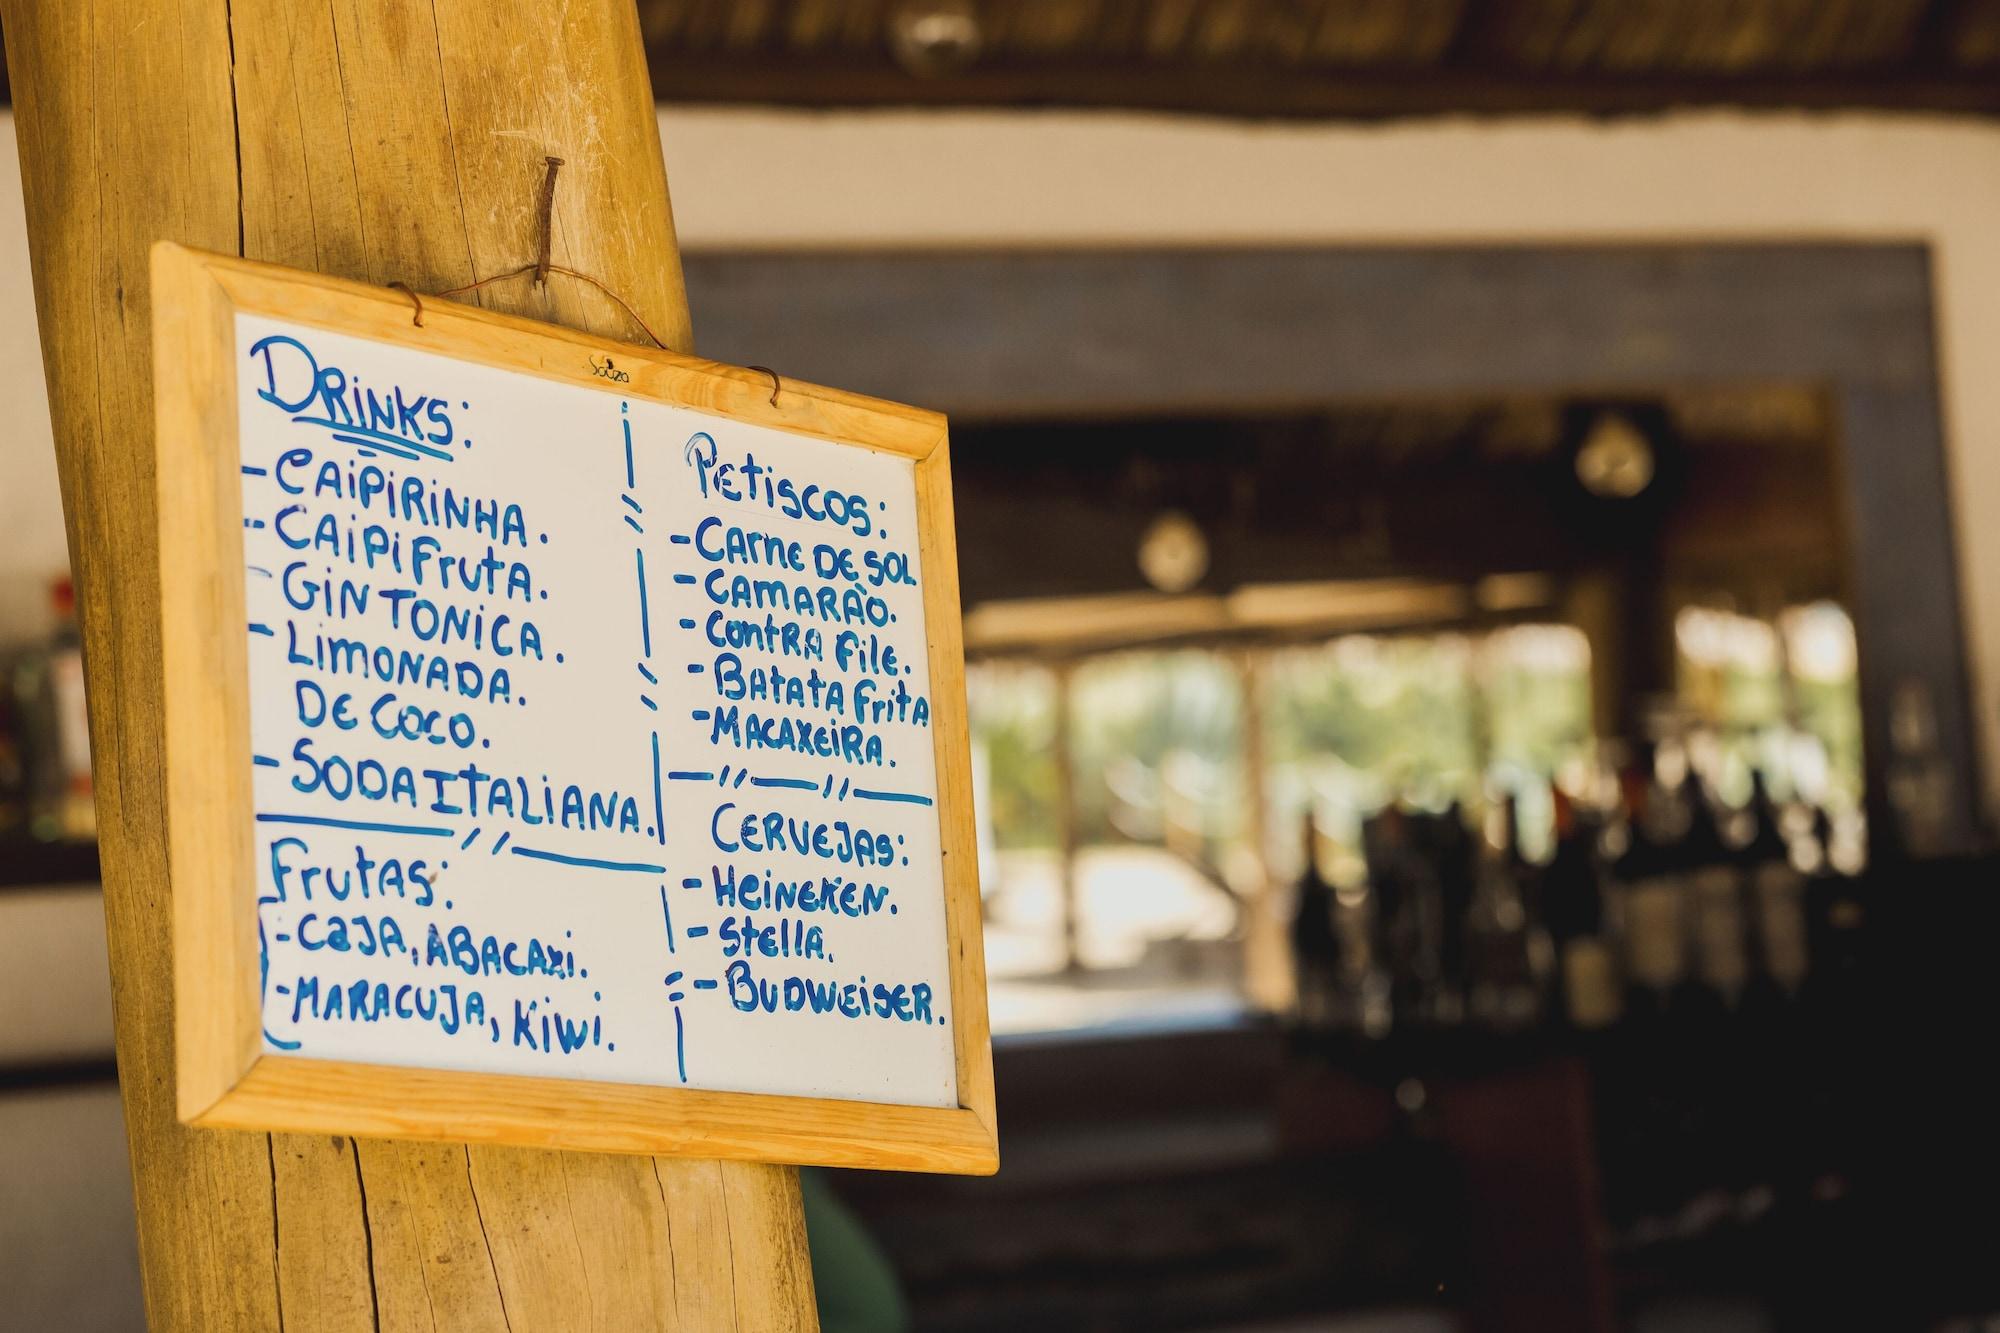 Souza
DRINKS:
- CAIPIRINHA.
- CAIPIFRUTA.
- GIN TONICA.
- LIMONADA.
DE COCO.
- SODA ITALIANA.
Frutas:
- CAJA, ABACAXI.
- MARACUJA, KIWI.
PETISCOS:
- CARNE DE SOL
- CAMARÃO.
- CONTRA FILE.
- BATATA FRITA
- MACAXEIRA.
CERVEJAS:
- HEINEKEN.
- Stella.
- BUDWEISER.